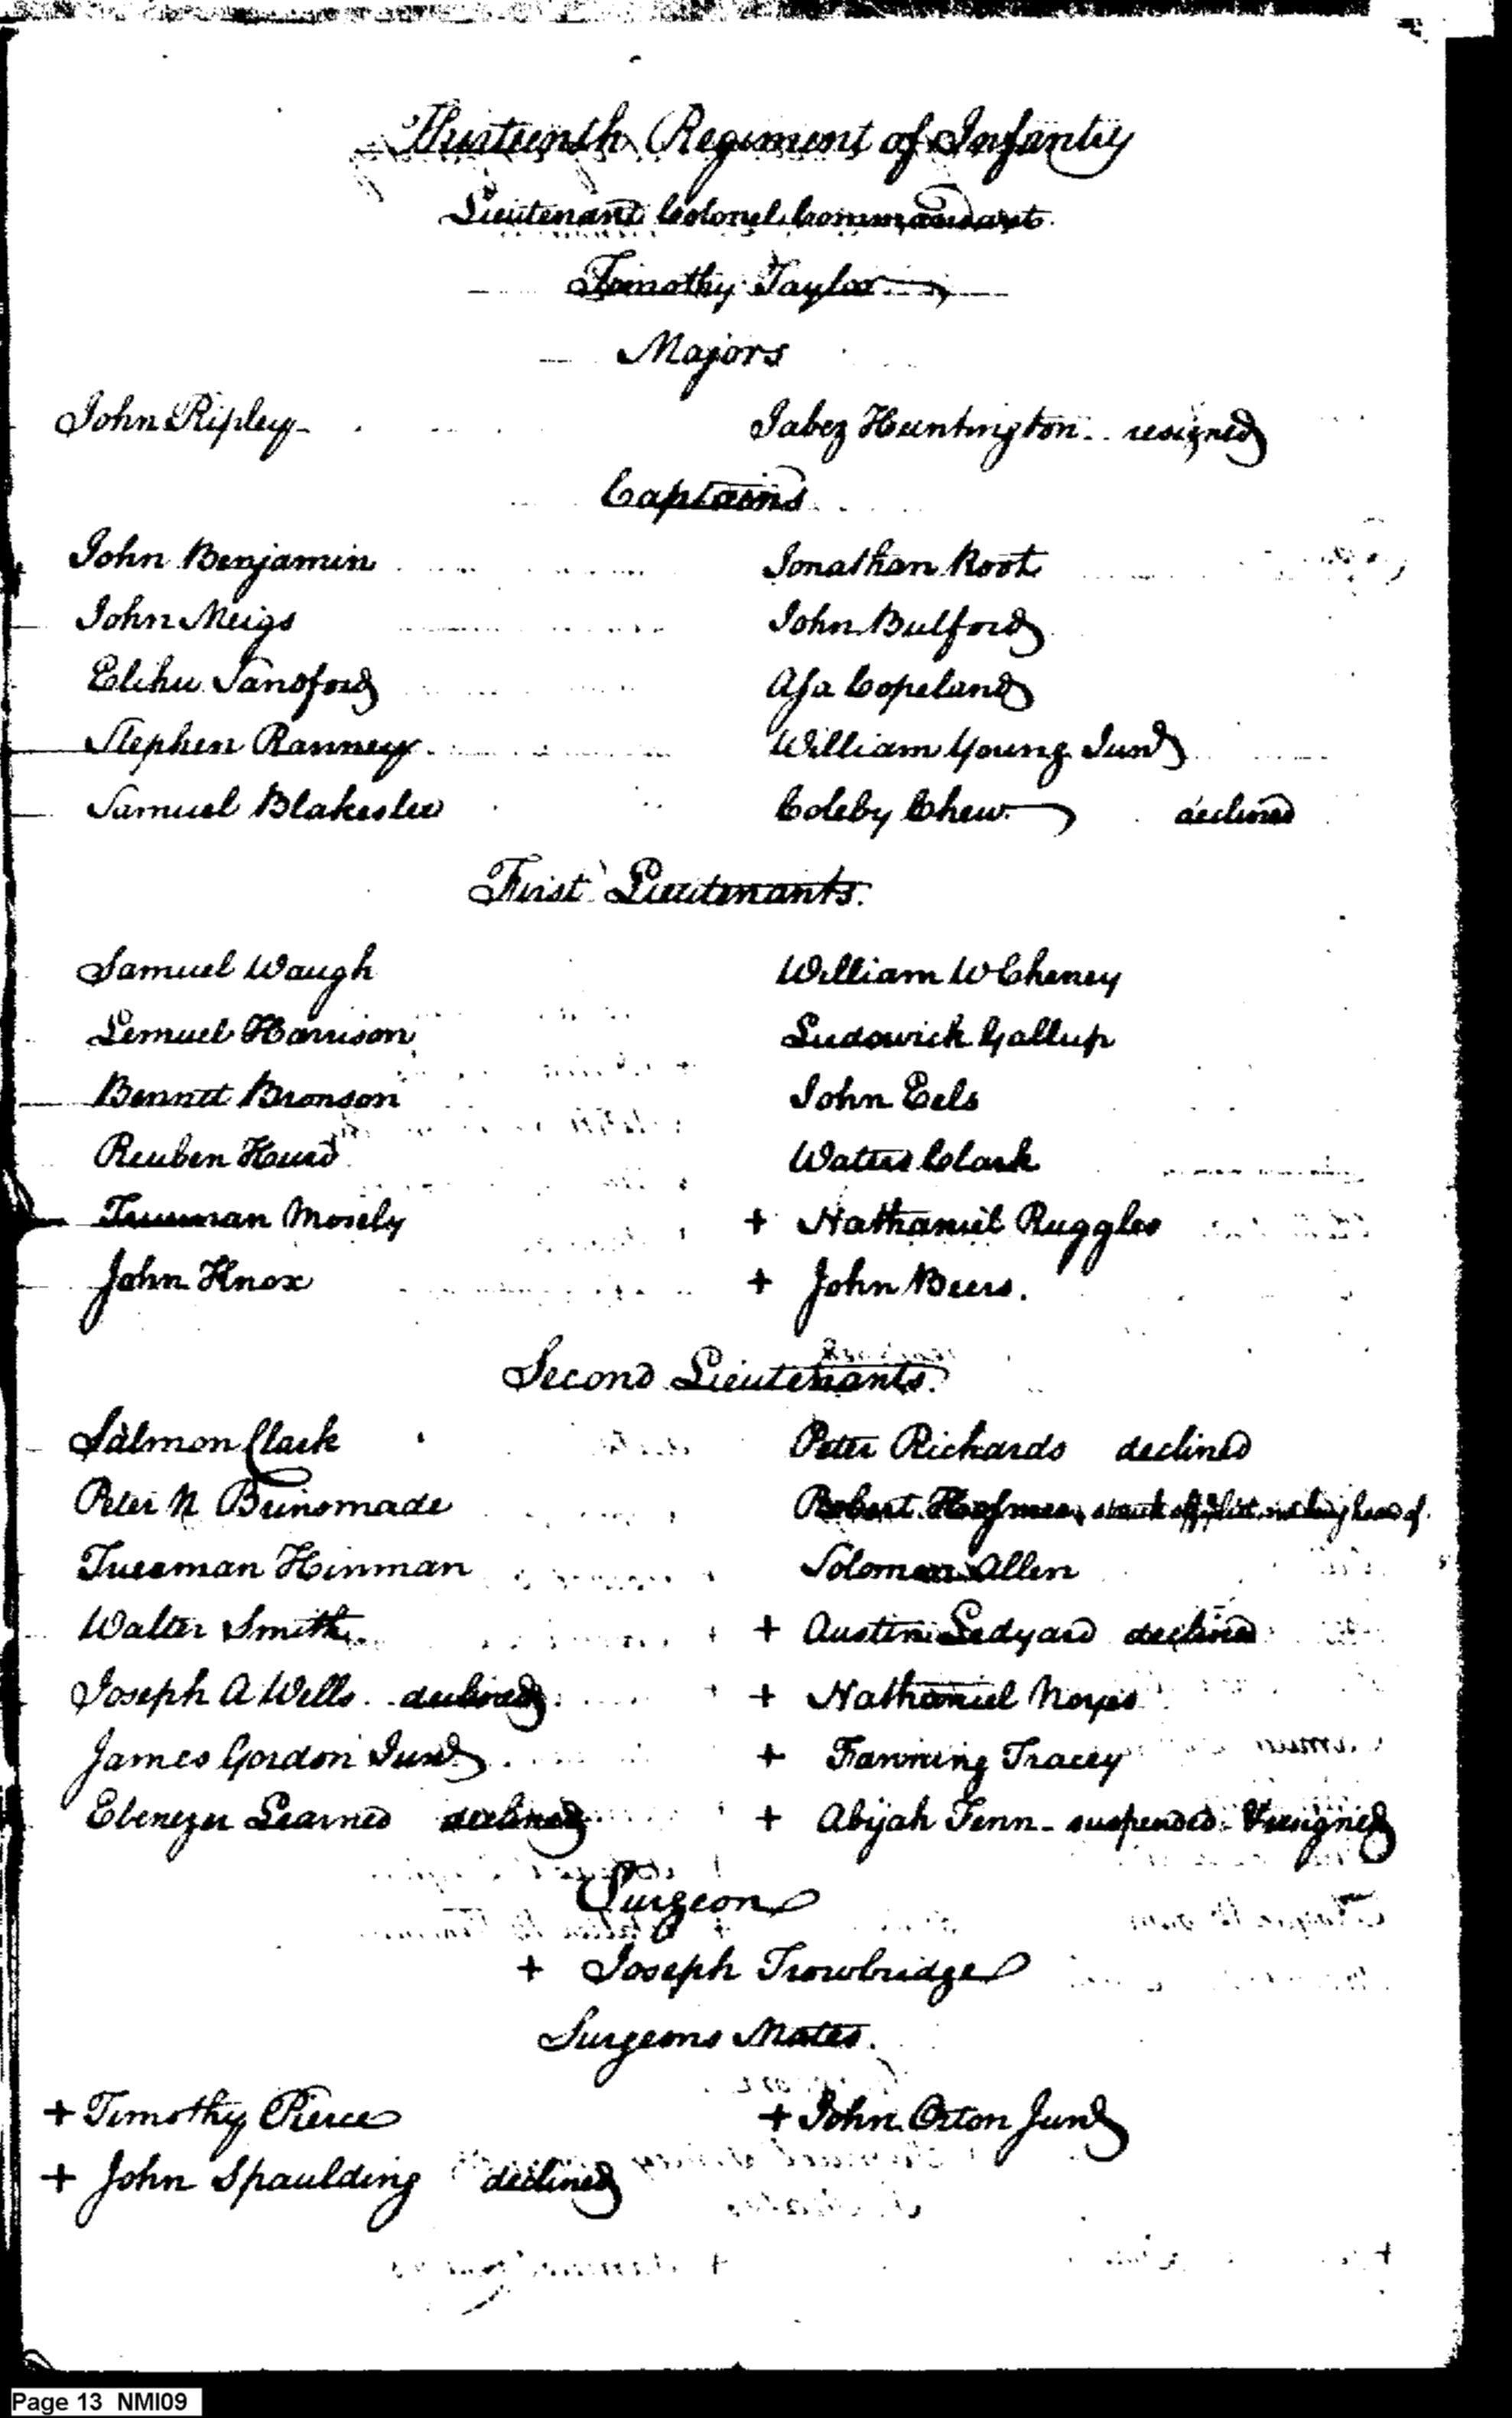 Thirteenth Regiment of Infantry
Lieutenant Colonel Commandant
Timothy Taylor
Majors
John Ripley Jabez Huntington resigned
Captains
John Benjamin Jonathan Root
John Meigs John Bulford
Elihu Sandford Asa Copeland
Stephen Ranney William Young Junr
Samuel Blakeslee Coleby Chew declined
First Lieutenants.
Samuel Waugh William W Cheney
Lemuel Harrison Ludowick Gallup
Bennett Bronson John Eels
Reuben Hurd Waters Clark
Trueman Mosely + Nathaniel Ruggles
John Knox + John Beers.
Second Lieutenants.
Salmon Clark Peter Richards declined
Peter N Brinsmade Robert struck off list not being heard of.
Trueman Hinman Solomon Allen
Walter Smith + Austin Ledyard declined
Joseph A Wells declined + Nathaniel Noyes
James Gordon Junr + Fanning Tracey
Ebenezer Learned declined + Abijah Fenn - suspended & resigned
Surgeon
+ Joseph Trowbridge
Surgeons Mates.
+ Timothy Pierce + John Orton Junr
+ John Spaulding declined
Page 13 NMI09